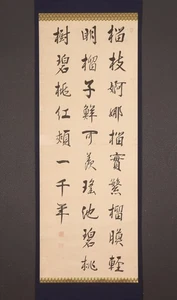 榴枝婀娜榴實繁榴膜輕
明榴子鮮可羨瑤池碧桃
樹碧桃紅頰一千年